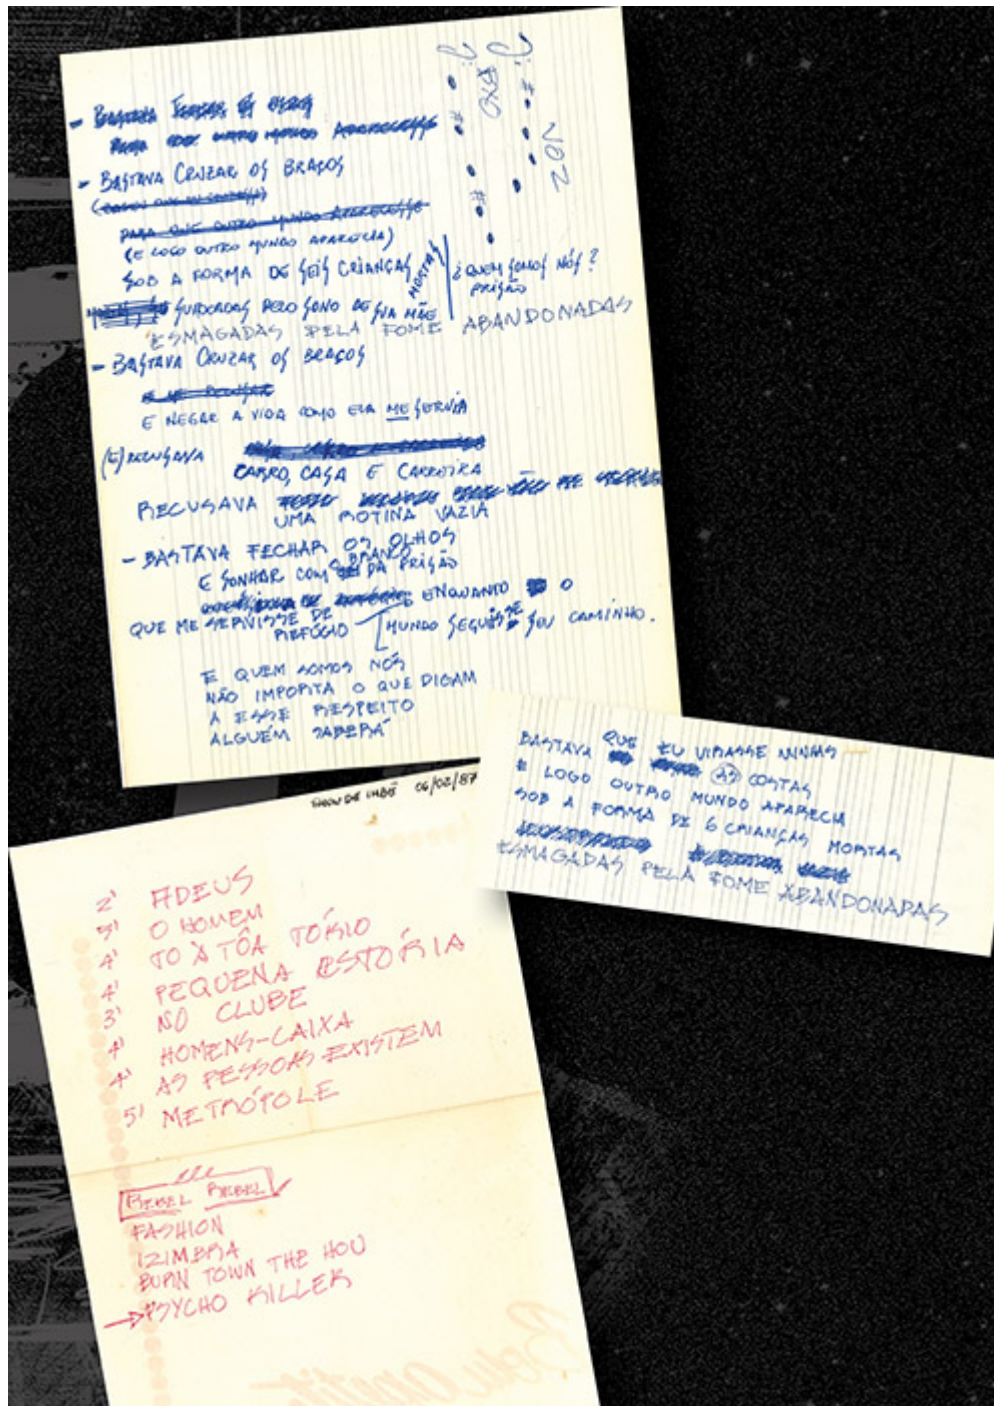 - BASTAVA
APARECESSE
- BASTAVA CRUZAR OS BRAÇOS
PARA QUE OUTRO MUNDO APARECESSE
(E LOGO OUTRO MUNDO APARECIA)
SOB A FORMA DE SEIS CRIANÇAS MORTAS
SUFOCADAS PELO SONO DE SUA MÃE
ESMAGADAS PELA FOME ABANDONADAS
¿QUEM SOMOS NÓS?
PRISÃO
- BASTAVA CRUZAR OS BRAÇOS
E NEGAR A VIDA COMO ELA ME SERVIA
(E) RECUSAVA
CARRO, CASA E CARREIRA
RECUSAVA
UMA ROTINA VAZIA
- BASTAVA FECHAR OS OLHOS
E SONHAR COM O BRANCO DA PRISÃO
QUE ME SERVISSE DE REFÚGIO
ENQUANDO O
MUNDO SEGUISSE SEU CAMINHO.
E QUEM SOMOS NÓS
NÃO IMPORTA O QUE DIGAM
A ESSE RESPEITO
ALGUÉM SABERÁ
BASTAVA QUE EU VIRASSE MINHAS
AS COSTAS
E LOGO OUTRO MUNDO APARECIA
SOB A FORMA DE 6 CRIANÇAS MORTAS
ESMAGADAS PELA FOME ABANDONADAS
SHOW DE IMBÉ 06/02/87
2' ADEUS
5' O HOMEM
4' TO À TÔA TÓKIO
4' PEQUENA ESTÓRIA
3' NO CLUBE
4' HOMENS-CAIXA
4' AS PESSOAS EXISTEM
5' METRÓPOLE
REBEL REBEL
FASHION
IZIMBRA
BURN TOWN THE HOU
PSYCHO KILLER
Bom apetite